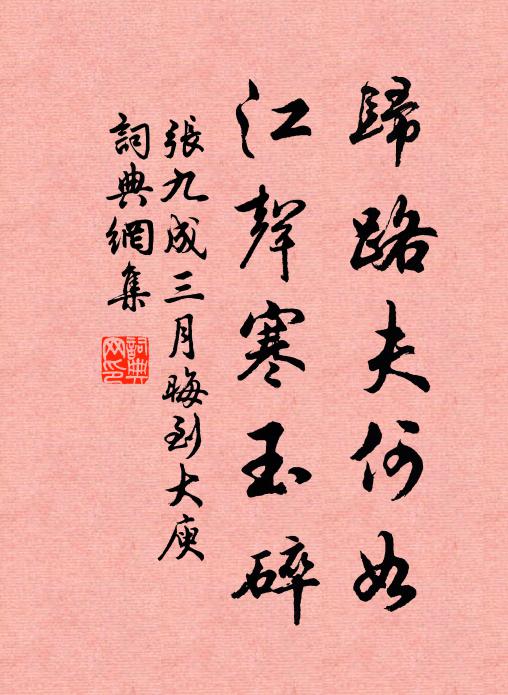 歸路夫何如
江聲寒玉碎
張九成三月晦到大庾
詞典網集
詞典網印